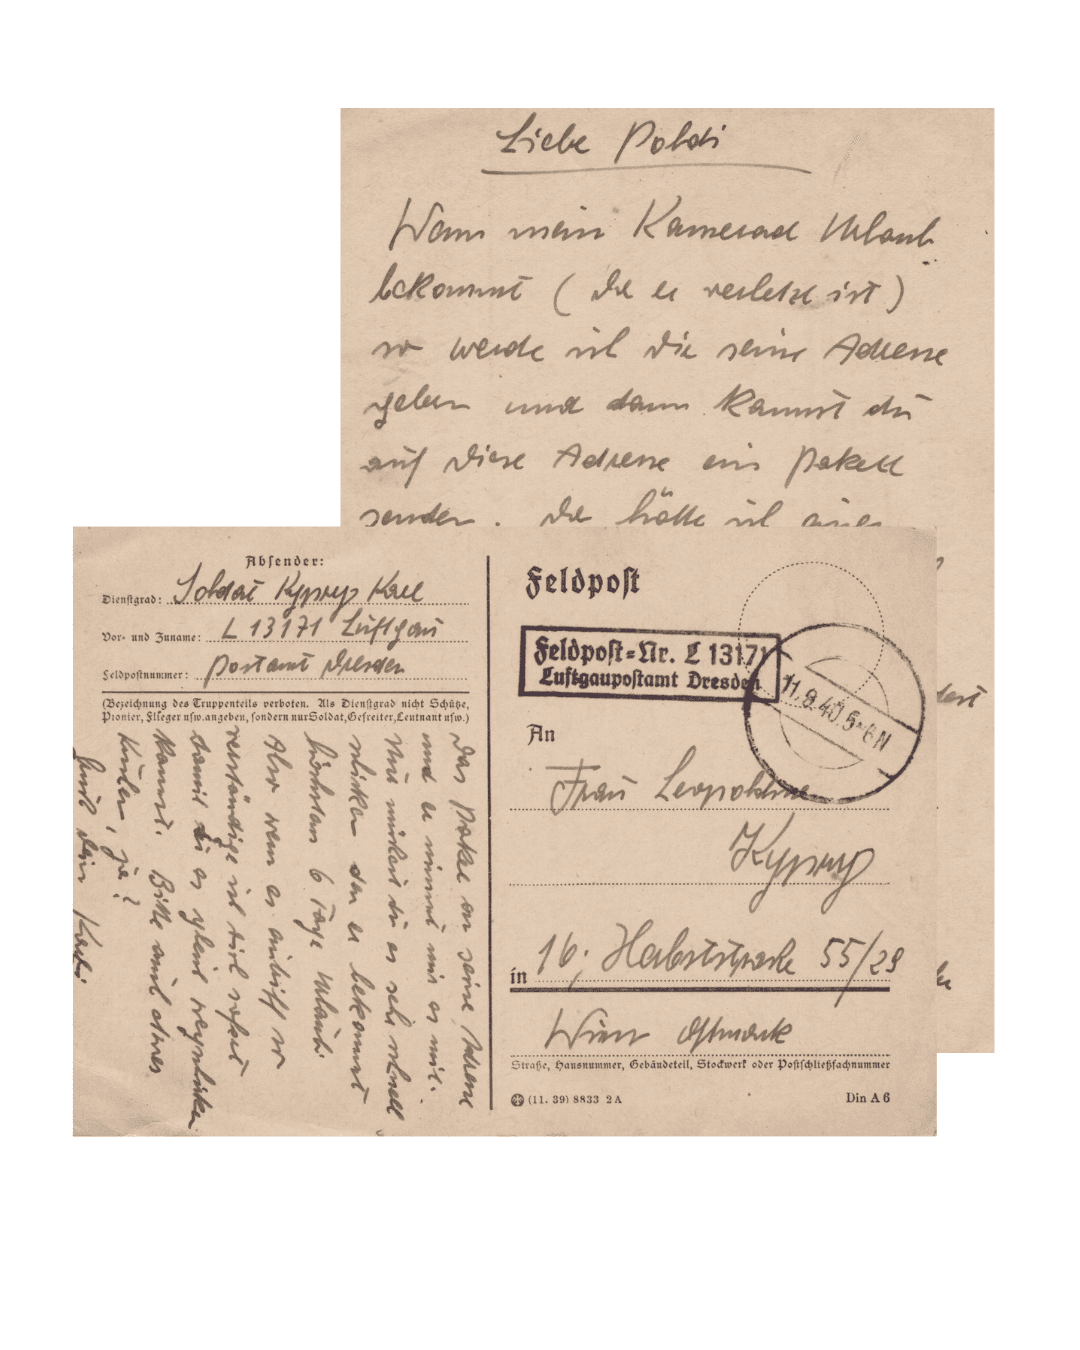 Liebe Poldi
Wann mein Kamerad Urlaub
bekommt (da er verletzt ist)
so werde ich dir seine Adresse
geben und dann kannst du
auf diese Adresse ein Paket
senden. Da hätte ich
Absender:
Dienstgrad: Soldat Kyprý Karl
Vor- und Zuname: L 13171 Luftgau
Feldpostnummer: Postamt Dresden
(Bezeichnung des Truppenteils verboten. Als Dienstgrad nicht Schütze,
Pionier, Flieger usw. angeben, sondern nur Soldat, Gefreiter, Leutnant usw.)
Das Paket an seine Adresse
und er nimmt mir es mit.
Nur mußt du es sehr schnell
schicken den er bekommt
höchstens 6 Tage Urlaub.
Also wenn es eintrifft so
verständige ich dich sofort
damit du es gleich wegschicken
kannst. Bitte auch etwas
ja?
dein Karli
Feldpost
Feldpost-Nr. L 13171
Luftgaupostamt Dresden
11.9.40.5-6N
An
Frau Leopoldine
Kyprý
in 16; 55/29
Wien Ostmark
Straße, Hausnummer, Gebäudeteil, Stockwerk oder Postschließfachnummer
(11. 39) 8833 2 A
Din A 6